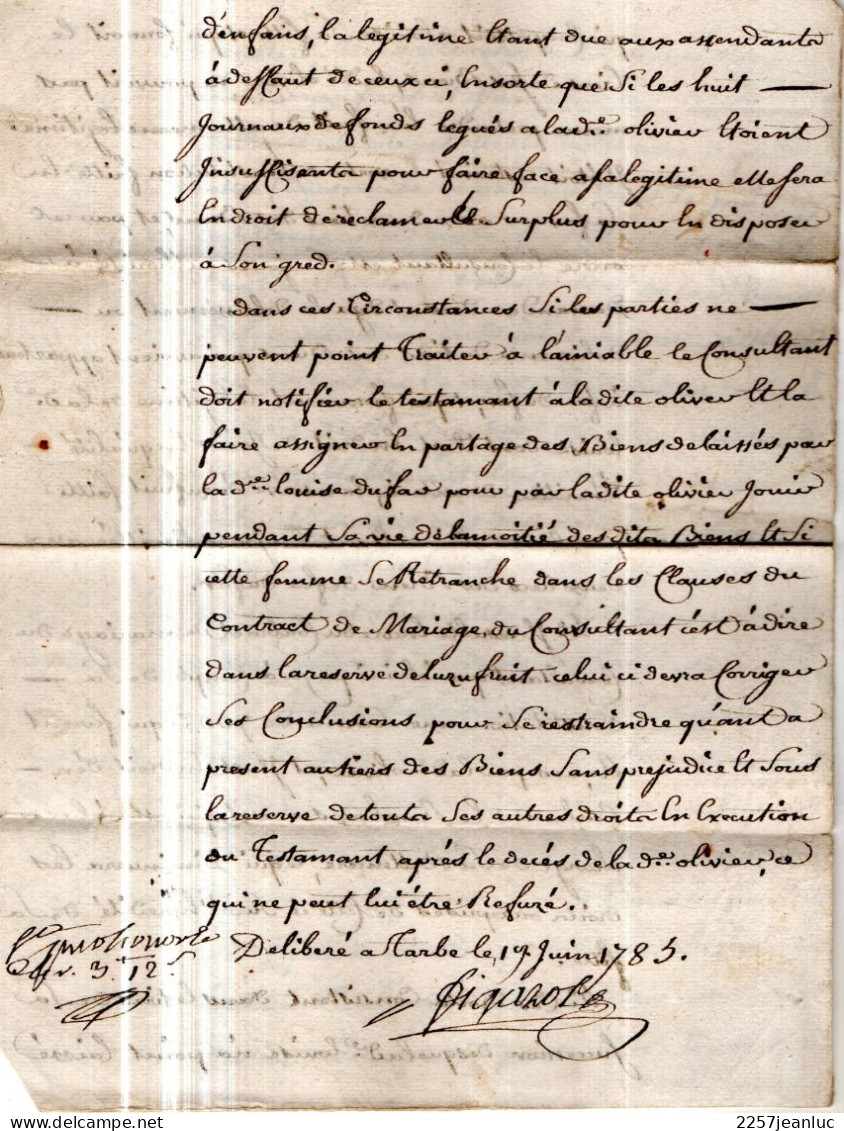 d'enfans, la legitime Etant due aux assendants
à deffaut de ceux ci, Ensorte que Si les huit —
Journaux de fonds legués a la d.e olivier Etoient
Insuffisents pour faire face a sa legitime elle sera
En droit de reclamer le Surplus pour En disposer
à Son gred.
dans ces Circonstances Si les parties ne —
peuvent point Traiter à l'ainiable le Consultant
doit notifier le testamant à la dite oliver Et la
faire assigner En partage des Biens delaissés par
la d.e louise dufar pour par ladite olivier Jouir
pendant Sa vie de la moitié des dits Biens Et Si
cette femme Se Retranche dans les Clauses du
Contract de Mariage du Consultant c'est à dire
dans la reserve de luzufruit celui ci devra Corriger
Ses Conclusions pour Se restraindre quant a
present au tiers des Biens Sans prejudice Et Sous
la reserve de touts Ses autres droits En Execution
du Testamant aprés le decés de la d.e olivier, ce
qui ne peut lui étre Refuzé.
Deliberé a Tarbe le 19 Juin 1785.
3 12 s
2257jeanluc